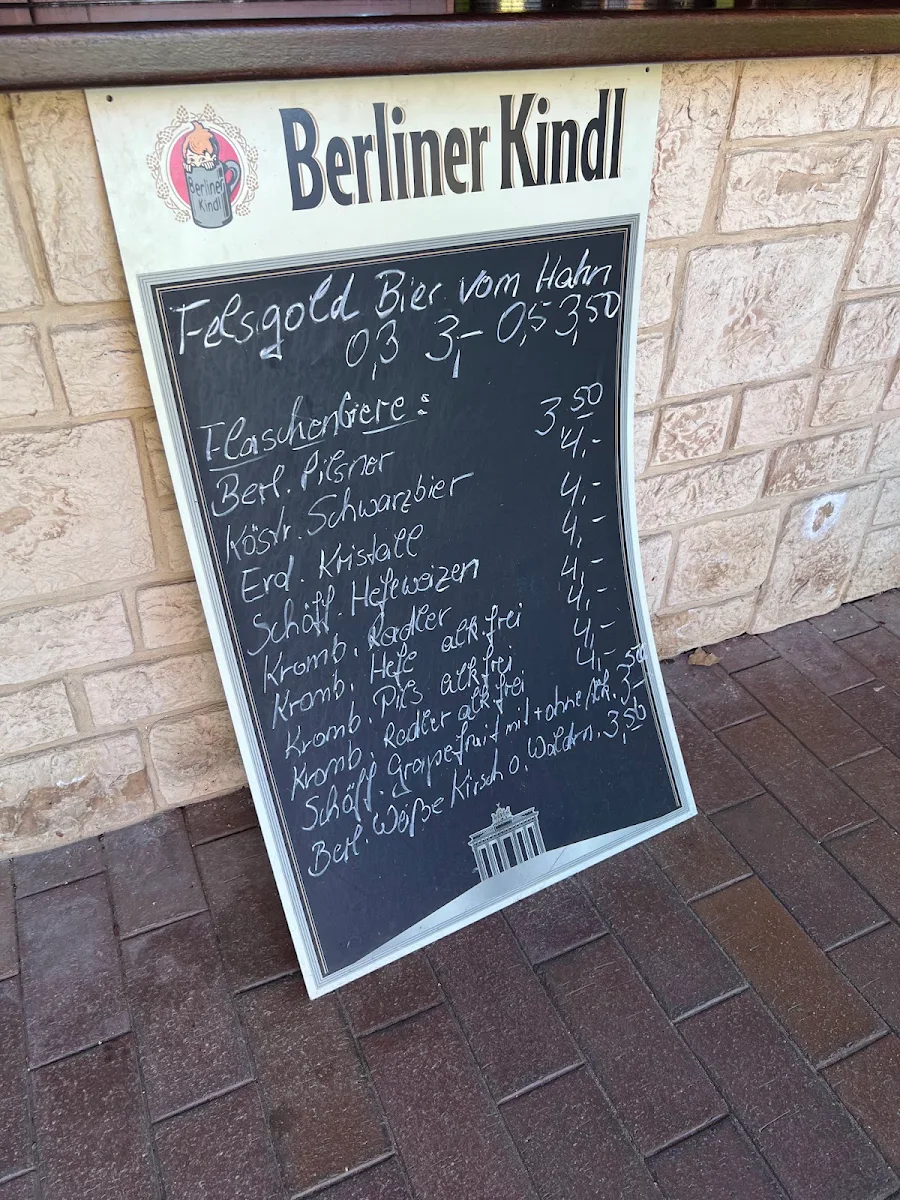 Berliner Kindl
Berliner
Kindl
Felsgold Bier vom Hahn
0,3 3,- 0,5 3,50
Flaschenbiere:
Berl. Pilsner 3,50
Köstr. Schwarzbier 4,-
Erd. Kristall 4,-
Schöff. Hefeweizen 4,-
Kromb. Radler 4,-
Kromb. Hefe alk.frei 4,-
Kromb. Pils alk.frei 4,-
Kromb. Radler alk.frei 4,-
Schöff. Grapefruit mit + ohne Alk. 3,50
Berl. Weiße Kirsch o. Waldm. 3,50